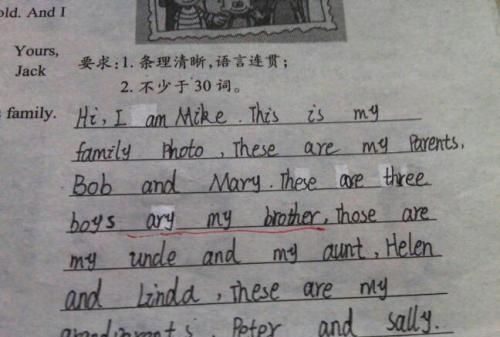 old. And I
Yours,
Jack
要求:1. 条理清晰,语言连贯;
2. 不少于 30 词。
family.
Hi, I am Mike. This is my
family Photo, These are my Parents,
Bob and Mary. These are three
boys ary my brother, Those are
my uncle and my aunt, Helen
and Linda, These are my
grandparents, Peter and sally.